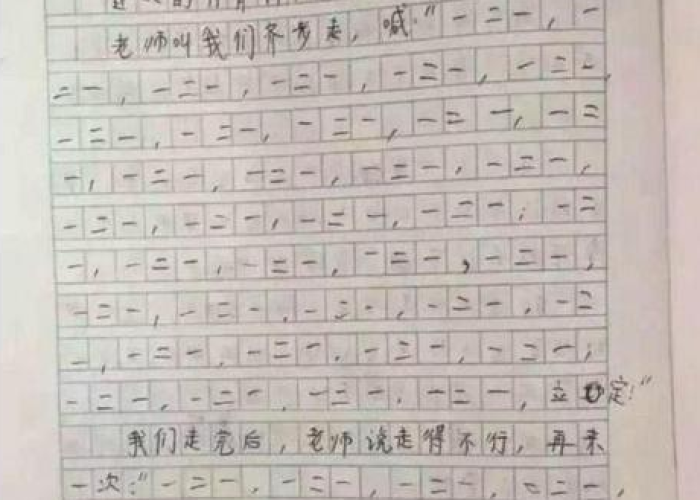 老师叫我们齐步走，喊："一二一，一
二一，一二一，一二一，一二一，一二一，
一二一，一二一，一二一，一二一，一二
一，一二一，一二一，一二一，一二一，
一二一，一二一，一二一，一二一，一二
一，一二一，一二一，一二一，一二一，
一二一，一二一，一二一，一二一，一二
一，一二一，一二一，一二一，一二一，
一二一，一二一，一二一，一二一，立定！"
我们走完后，老师说走得不行，再来
一次："一二一，一二一，一二一，一二一，